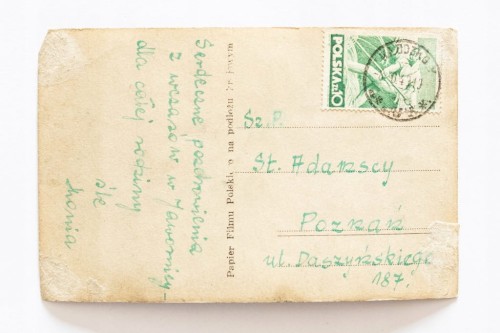 Serdeczne pozdrowienia
z wczasów w
dla całej rodziny
Papier Filmu Polskiego na podłożu
POLSKA 10
Sz. P.
St. Adamscy
Poznań
ul. Daszyńskiego
187.